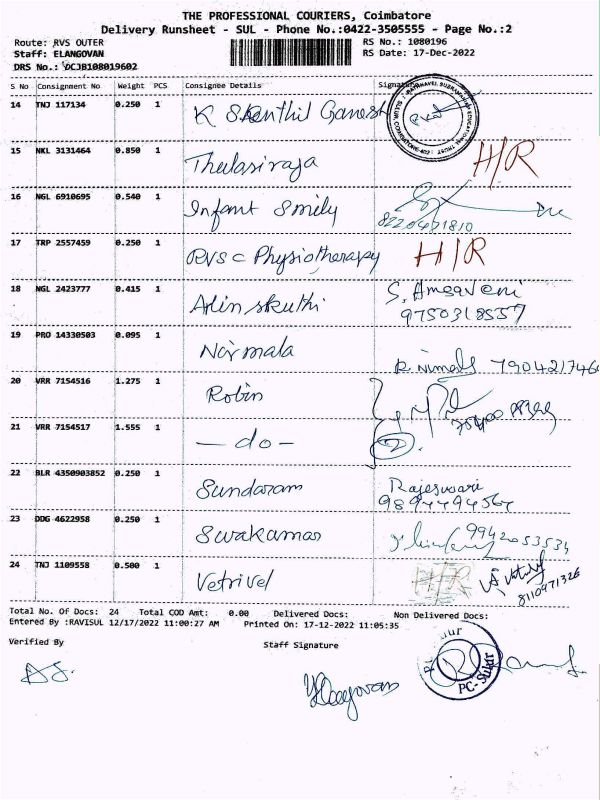 THE PROFESSIONAL COURIERS, Coimbatore
Delivery Runsheet - SUL - Phone No.:0422-3505555 - Page No.:2
Route: RVS OUTER RS No.: 1080196
Staff: ELANGOVAN RS Date: 17-Dec-2022
DRS No.: DCJB108019602
S No Consignment No Weight PCS Consignee Details Signature
14 TNJ 117134 0.250 1 K Senthil Ganesh
15 NKL 3131464 0.850 1 Thulasiraja H/R
16 NGL 6910695 0.540 1 Infant Smily 8220471810
17 TRP 2557459 0.250 1 RVS C Physiotherapy H/R
18 NGL 2423777 0.415 1 S. Amsaveni
9750318557
19 PRO 14330503 0.095 1 Normala R. Nirmala 790421746
20 VRR 7154516 1.275 1 Robin
21 VRR 7154517 1.555 1 — do — 2
22 BLR 4350903852 0.250 1 Sundaram Rajeswari
9894494564
23 DDG 4622958 0.250 1 9942053534
24 TNJ 1109558 0.500 1 Vetrivel H/R 8110971326
Total No. Of Docs: 24 Total COD Amt: 0.00 Delivered Docs: Non Delivered Docs:
Entered By :RAVISUL 12/17/2022 11:00:27 AM Printed On: 17-12-2022 11:05:35
Verified By Staff Signature
Elangovan
PC-Sulur